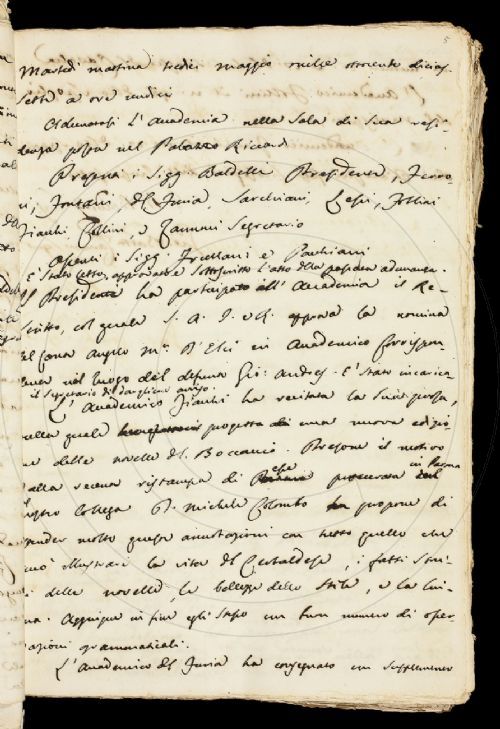 5
Martedì mattina tredici maggio mille ottocento dicias
sette a ore undici
Adunatasi l'Accademia nella Sala di sua resi
denza posta nel Palazzo Riccardi
Presenti i Sigg. Baldelli Presidente, Ferro
ni, Fontani, del Furia, Sarchiani, Lessi, Follini
Fiacchi, Collini, e Zannoni Segretario
Assenti i Sigg. Frullani e Pachiani
È stato letto, approvato e sottoscritto l'atto della passata adunanza.
Il Presidente ha participato all'Accademia il Re
scritto, col quale S. A. I. e R. approva la nomina
del Angelo M.a D'Elci in Accademico Corrispon
dente nel luogo del defunto Gio: Andres. È stato incaricato
il Segretario di dargliene avviso.
L'Accademico Fiacchi ha recitata la Lezione,
nella quale progetta una nuova edizio
ne delle novelle del Boccaccio. Presone il motivo
dalla recente ristampa di esse procurata in Parma dal
nostro Collega D. Michele Colombo propone di
render molto annotazioni con tutto quello che
può illustrare la vita del Certaldese, i fatti stori
ci delle novelle, le bellezze dello stile, e la lin
gua. Aggiunge in fine egli stesso un buon numero di osser
vazioni grammaticali.
L'Accademico del Furia ha consegnato un supplemento